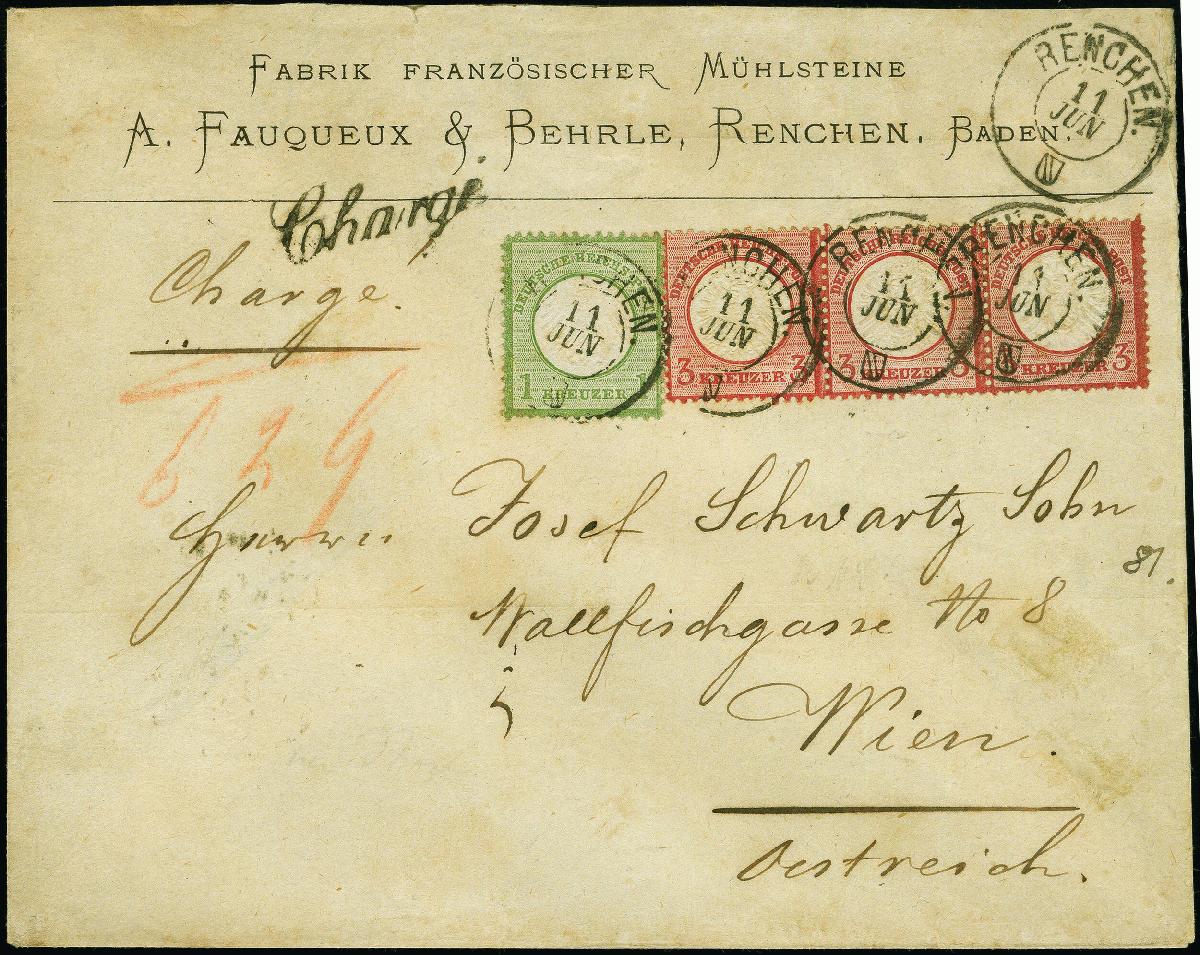 FABRIK FRANZÖSISCHER MÜHLSTEINE
A. FAUQUEUX & BEHRLE, RENCHEN, BADEN.
RENCHEN.
11
JUN
N
Chargé
Charge.
DEUTSCHE REICHSPOST
CHEN.
11
JUN
1 KREUZER 1
DEUTSCHE REICHSPOST
NCHEN.
11
JUN
3 KREUZER 3
RENCH
11
JUN
N
3 KREUZER 3
RENCHEN
11
JUN
N
KREUZER 3
Herrn Josef Schwartz Sohn
81.
Wallfischgasse No 8
Wien.
Oestreich.